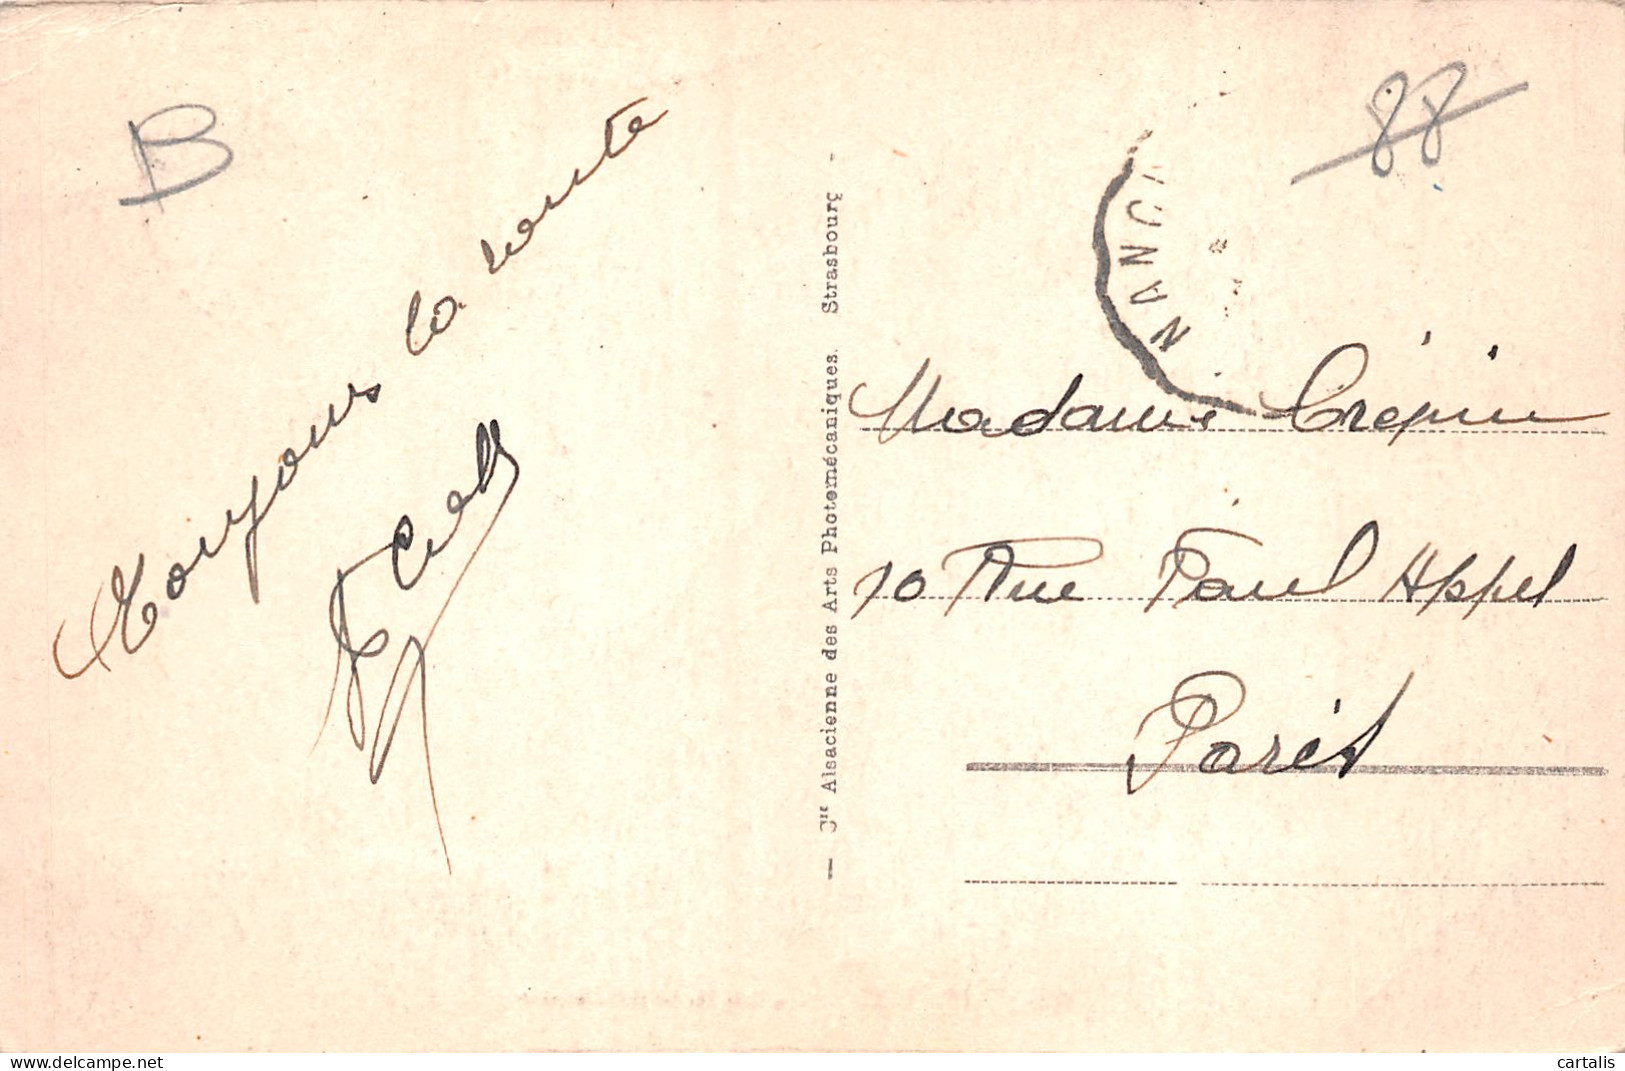 B
88
la route
NANC
— Cie Alsacienne des Arts Photomécaniques. Strasbourg -
Madame Crépin
10 Rue Paul Appel
Paris
www.delcampe.net
cartalis